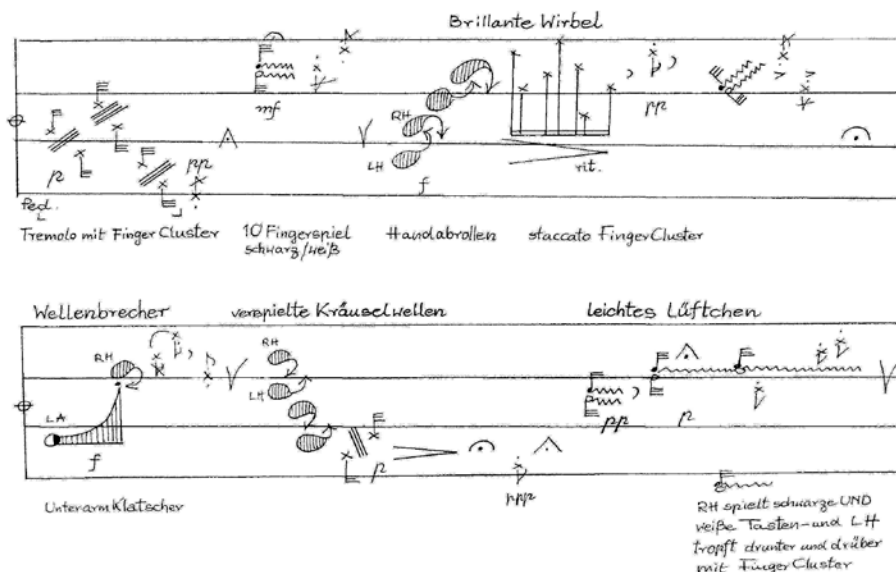 Brillante Wirbel
mf
RH
pp
p
pp
LH
f
rit.
Ped.
Tremolo mit Finger Cluster
10 Fingerspiel
schwarz/weiß
Handabrollen
staccato Finger Cluster
Wellenbrecher
verspielte Kräuselwellen
leichtes Lüftchen
RH
RH
LH
LA
pp
p
f
p
ppp
Unterarm Klatscher
RH spielt schwarze UND
weiße Tasten-und LH
tropft drunter und drüber
mit Finger Cluster